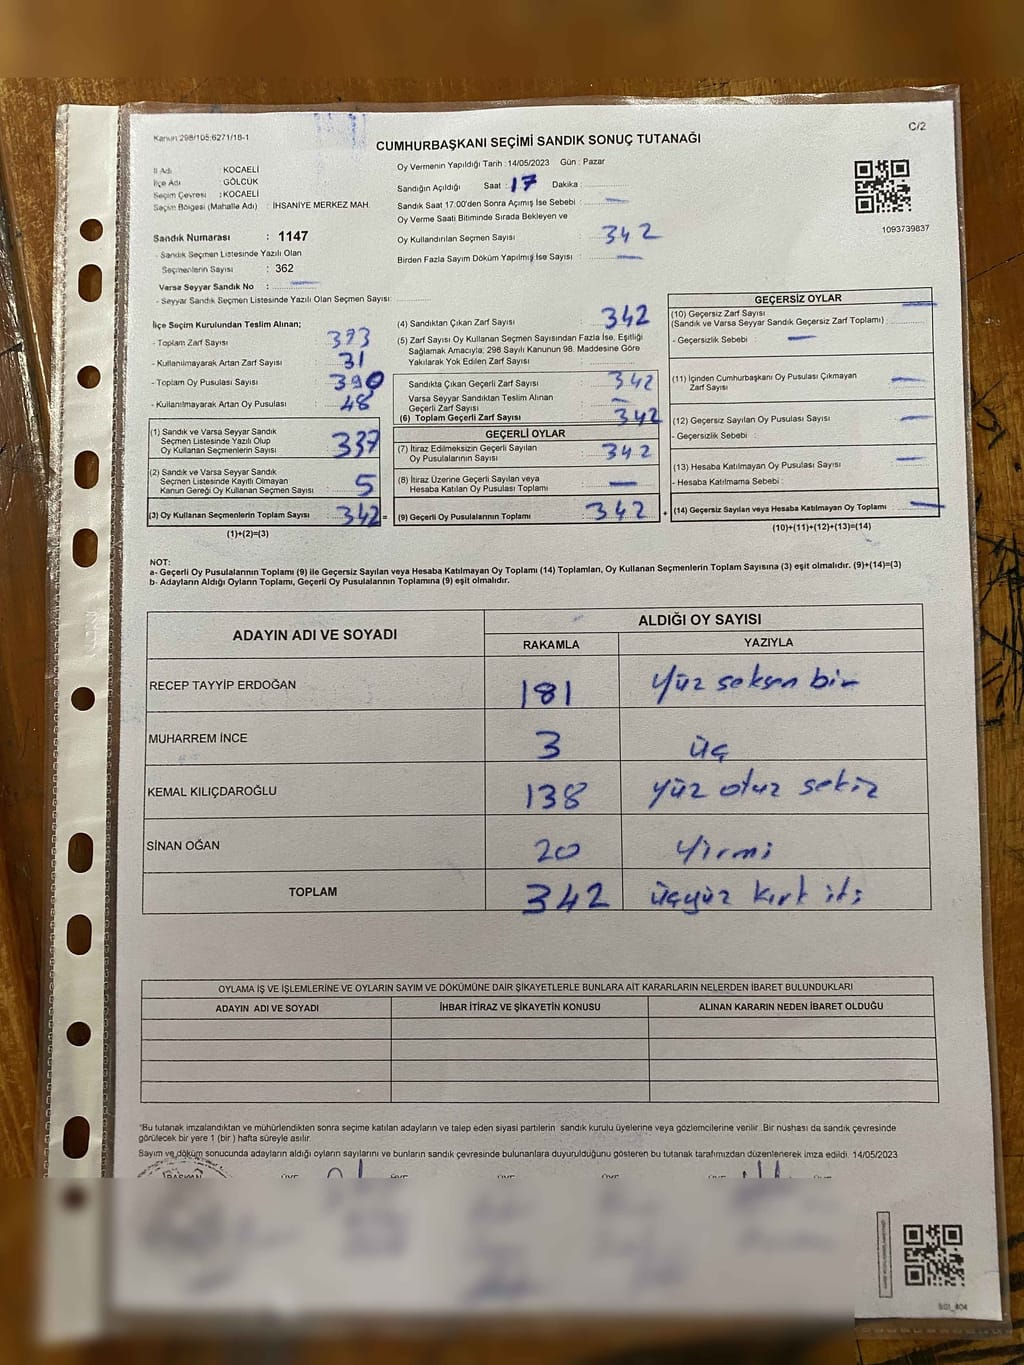 Kanun 298/105;6271/18-1
C/2
CUMHURBAŞKANI SEÇİMİ SANDIK SONUÇ TUTANAĞI
İl Adı : KOCAELİ
İlçe Adı : GÖLCÜK
Seçim Çevresi : KOCAELİ
Seçim Bölgesi (Mahalle Adı) : İHSANİYE MERKEZ MAH.
Sandık Numarası : 1147
- Sandık Seçmen Listesinde Yazılı Olan
Seçmenlerin Sayısı : 362
Varsa Seyyar Sandık No : —
- Seyyar Sandık Seçmen Listesinde Yazılı Olan Seçmen Sayısı:
Oy Vermenin Yapıldığı Tarih : 14/05/2023 Gün : Pazar
Sandığın Açıldığı Saat : 17 Dakika :
Sandık Saat 17:00'den Sonra Açımış İse Sebebi : —
Oy Verme Saati Bitiminde Sırada Bekleyen ve
Oy Kullandırılan Seçmen Sayısı : 342
Birden Fazla Sayım Döküm Yapılmış İse Sayısı : —
1093739837
İlçe Seçim Kurulundan Teslim Alınan;
- Toplam Zarf Sayısı : 373
- Kullanılmayarak Artan Zarf Sayısı : 31
- Toplam Oy Pusulası Sayısı : 390
- Kullanılmayarak Artan Oy Pusulası : 48
(1) Sandık ve Varsa Seyyar Sandık
Seçmen Listesinde Yazılı Olup
Oy Kullanan Seçmenlerin Sayısı : 337
(2) Sandık ve Varsa Seyyar Sandık
Seçmen Listesinde Kayıtlı Olmayan
Kanun Gereği Oy Kullanan Seçmen Sayısı : 5
(3) Oy Kullanan Seçmenlerin Toplam Sayısı : 342 =
(1)+(2)=(3)
(4) Sandıktan Çıkan Zarf Sayısı : 342
(5) Zarf Sayısı Oy Kullanan Seçmen Sayısından Fazla İse, Eşitliği
Sağlamak Amacıyla; 298 Sayılı Kanunun 98. Maddesine Göre
Yakılarak Yok Edilen Zarf Sayısı :
Sandıkta Çıkan Geçerli Zarf Sayısı : 342
Varsa Seyyar Sandıktan Teslim Alınan
Geçerli Zarf Sayısı : —
(6) Toplam Geçerli Zarf Sayısı : 342
GEÇERLİ OYLAR
(7) İtiraz Edilmeksizin Geçerli Sayılan
Oy Pusulalarının Sayısı : 342
(8) İtiraz Üzerine Geçerli Sayılan veya
Hesaba Katılan Oy Pusulası Toplamı : —
(9) Geçerli Oy Pusulalarının Toplamı : 342 +
GEÇERSİZ OYLAR
(10) Geçersiz Zarf Sayısı
(Sandık ve Varsa Seyyar Sandık Geçersiz Zarf Toplamı) : —
- Geçersizlik Sebebi : —
(11) İçinden Cumhurbaşkanı Oy Pusulası Çıkmayan
Zarf Sayısı : —
(12) Geçersiz Sayılan Oy Pusulası Sayısı : —
- Geçersizlik Sebebi :
(13) Hesaba Katılmayan Oy Pusulası Sayısı : —
- Hesaba Katılmama Sebebi :
(14) Geçersiz Sayılan veya Hesaba Katılmayan Oy Toplamı : —
(10)+(11)+(12)+(13)=(14)
NOT:
a- Geçerli Oy Pusulalarının Toplamı (9) ile Geçersiz Sayılan veya Hesaba Katılmayan Oy Toplamı (14) Toplamları, Oy Kullanan Seçmenlerin Toplam Sayısına (3) eşit olmalıdır. (9)+(14)=(3)
b- Adayların Aldığı Oyların Toplamı, Geçerli Oy Pusulalarının Toplamına (9) eşit olmalıdır.
ADAYIN ADI VE SOYADI ALDIĞI OY SAYISI
RAKAMLA YAZIYLA
RECEP TAYYİP ERDOĞAN 181 yüz seksen bir
MUHARREM İNCE 3 üç
KEMAL KILIÇDAROĞLU 138 yüz otuz sekiz
SİNAN OĞAN 20 yirmi
TOPLAM 342 üçyüz kırk iki
OYLAMA İŞ VE İŞLEMLERİNE VE OYLARIN SAYIM VE DÖKÜMÜNE DAİR ŞİKAYETLERLE BUNLARA AİT KARARLARIN NELERDEN İBARET BULUNDUKLARI
ADAYIN ADI VE SOYADI İHBAR İTİRAZ VE ŞİKAYETİN KONUSU ALINAN KARARIN NEDEN İBARET OLDUĞU
*Bu tutanak imzalandıktan ve mühürlendikten sonra seçime katılan adayların ve talep eden siyasi partilerin sandık kurulu üyelerine veya gözlemcilerine verilir. Bir nüshası da sandık çevresinde
görülecek bir yere 1 (bir) hafta süreyle asılır.
Sayım ve döküm sonucunda adayların aldığı oyların sayılarını ve bunların sandık çevresinde bulunanlara duyurulduğunu gösteren bu tutanak tarafımızdan düzenlenerek imza edildi. 14/05/2023
BAŞKAN ÜYE ÜYE ÜYE ÜYE ÜYE ÜYE
S01_404